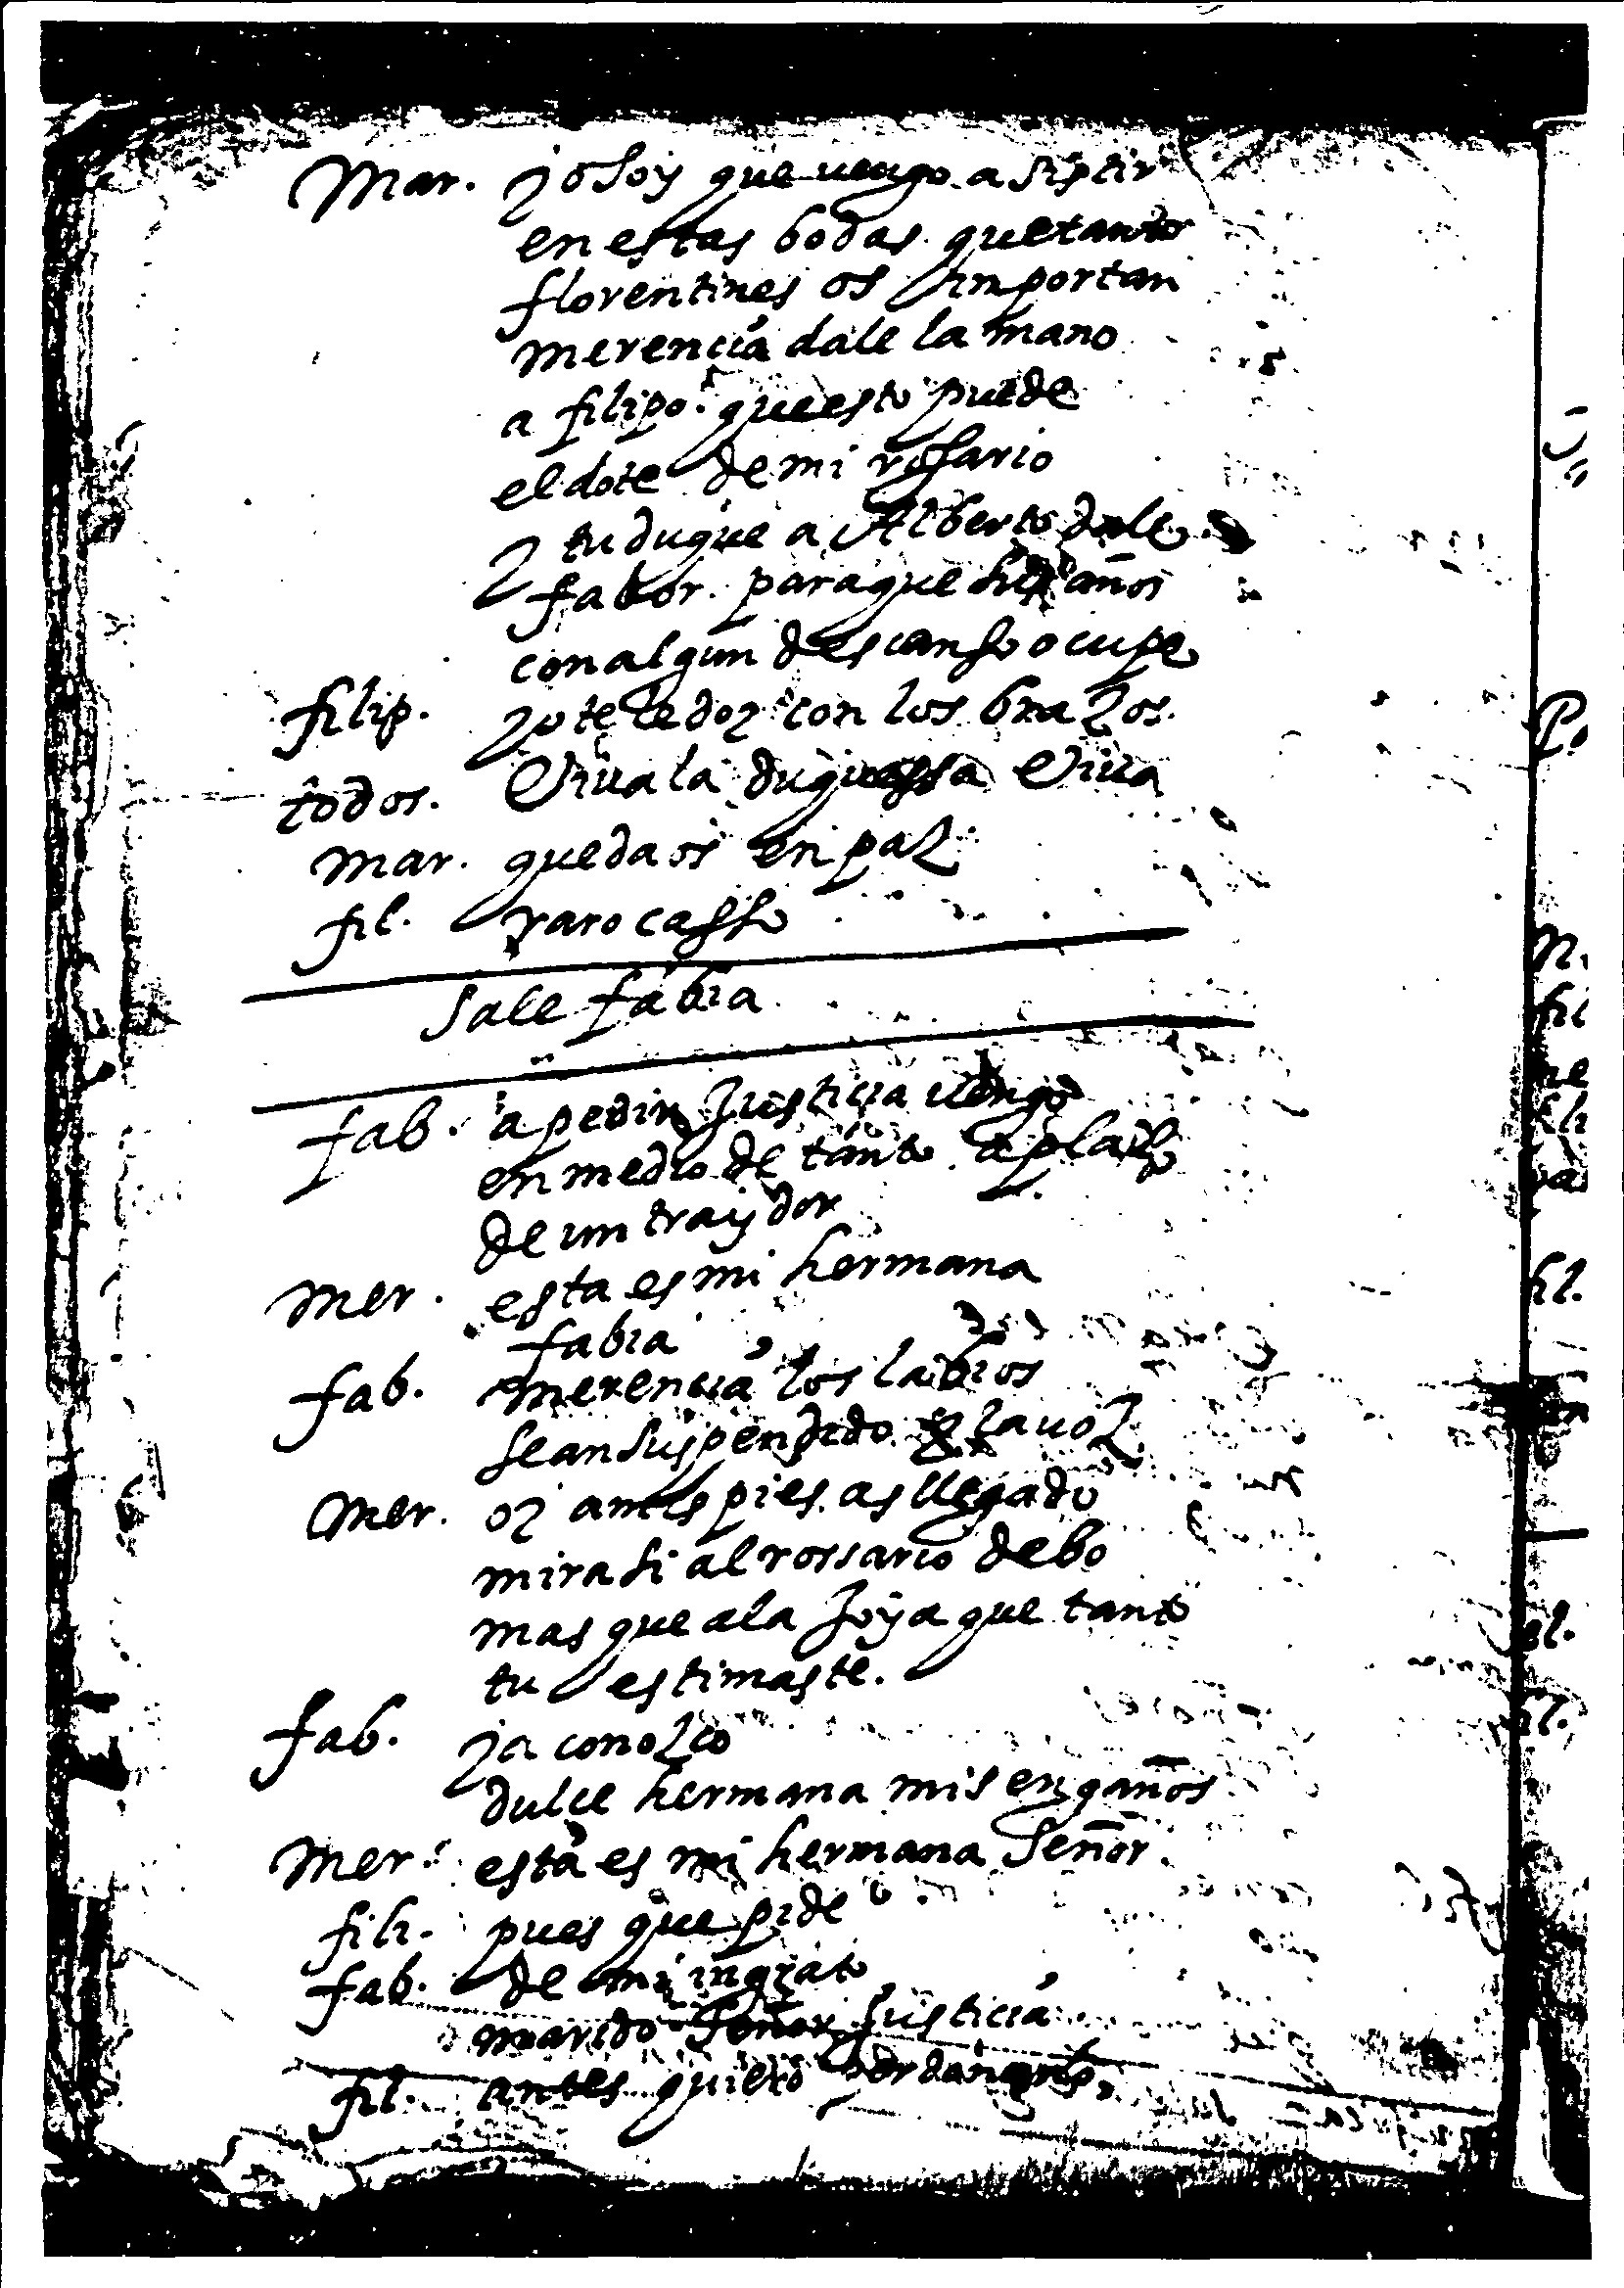 Mar. yo soy que uengo a sistir
en estas bodas que tanto
florentines os importan
merencia dale la mano
a filipo. que esto puede
el dote de mi rosario
y tu duque a Alberto dale
fabor. para que sus años
con algun descanso ocupe
filip. yo te le doy con los brazos.
todos. Viua la duquessa Viua
Mar. quedaos en paz
fil. raro casso
Sale fabia
fab. a pedir Justicia uengo
en medio de tanto aplauso
de un traydor
Mer. esta es mi hermana
fabia
fab. merencia los labios
se an suspendido y la uoz
Mer. oy a mis pies. as llegado
mira si al rossario debo
mas que a la Joya que tanto
tu estimaste.
fab. ya conozco
dulce hermana mis engaños
Mer. esta es mi hermana Señor
fili. pues que pide
fab. de mi ingrato
marido Señor Justicia
fil. antes quiero